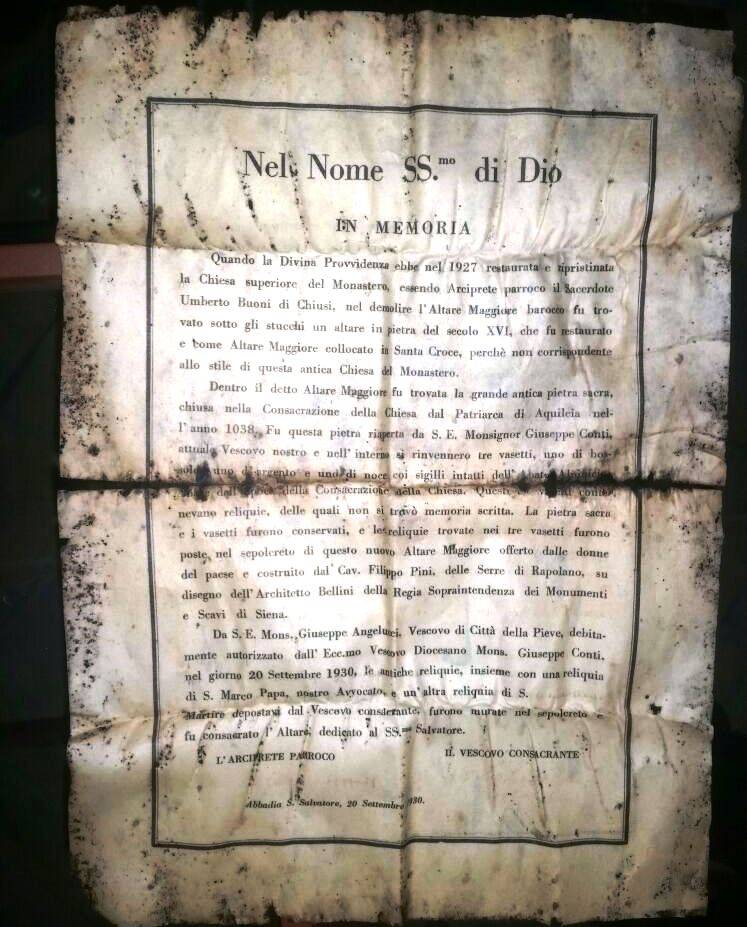 Nel Nome SS.mo di Dio
IN MEMORIA
Quando la Divina Provvidenza ebbe nel 1927 restaurata e ripristinata
la Chiesa superiore del Monastero, essendo Arciprete parroco il Sacerdote
Umberto Buoni di Chiusi, nel demolire l'Altare Maggiore barocco fu tro-
vato sotto gli stucchi un altare in pietra del secolo XVI, che fu restaurato
e come Altare Maggiore collocato in Santa Croce, perchè non corrispondente
allo stile di questa antica Chiesa del Monastero.
Dentro il detto Altare Maggiore fu trovata la grande antica pietra sacra,
chiusa nella Consacrazione della Chiesa dal Patriarca di Aquileia nel-
l'anno 1038. Fu questa pietra riaperta da S. E. Monsignor Giuseppe Conti,
attuale Vescovo nostro e nell'interno si rinvennero tre vasetti, uno di bos-
solo, uno di argento e uno di noce coi sigilli intatti dell'
dell' della Consacrazione della Chiesa. Questi vasetti conte-
nevano reliquie, delle quali non si trovò memoria scritta. La pietra sacra
e i vasetti furono conservati, e le reliquie trovate nei tre vasetti furono
poste nel sepolcreto di questo nuovo Altare Maggiore offerto dalle donne
del paese e costruito dal Cav. Filippo Pini, delle Serre di Rapolano, su
disegno dell'Architetto Bellini della Regia Sopraintendenza dei Monumenti
e Scavi di Siena.
Da S. E. Mons. Giuseppe Angelucci, Vescovo di Città della Pieve, debita-
mente autorizzato dall'Ecc.mo Vescovo Diocesano Mons. Giuseppe Conti,
nel giorno 20 Settembre 1930, le antiche reliquie, insieme con una reliquia
di S. Marco Papa, nostro Avvocato, e un'altra reliquia di S.
Martire depostavi dal Vescovo consacrante, furono murate nel sepolcreto e
fu consacrato l'Altare, dedicato al SS.mo Salvatore.
L'ARCIPRETE PARROCO IL VESCOVO CONSACRANTE
Abbadia S. Salvatore, 20 Settembre 1930.